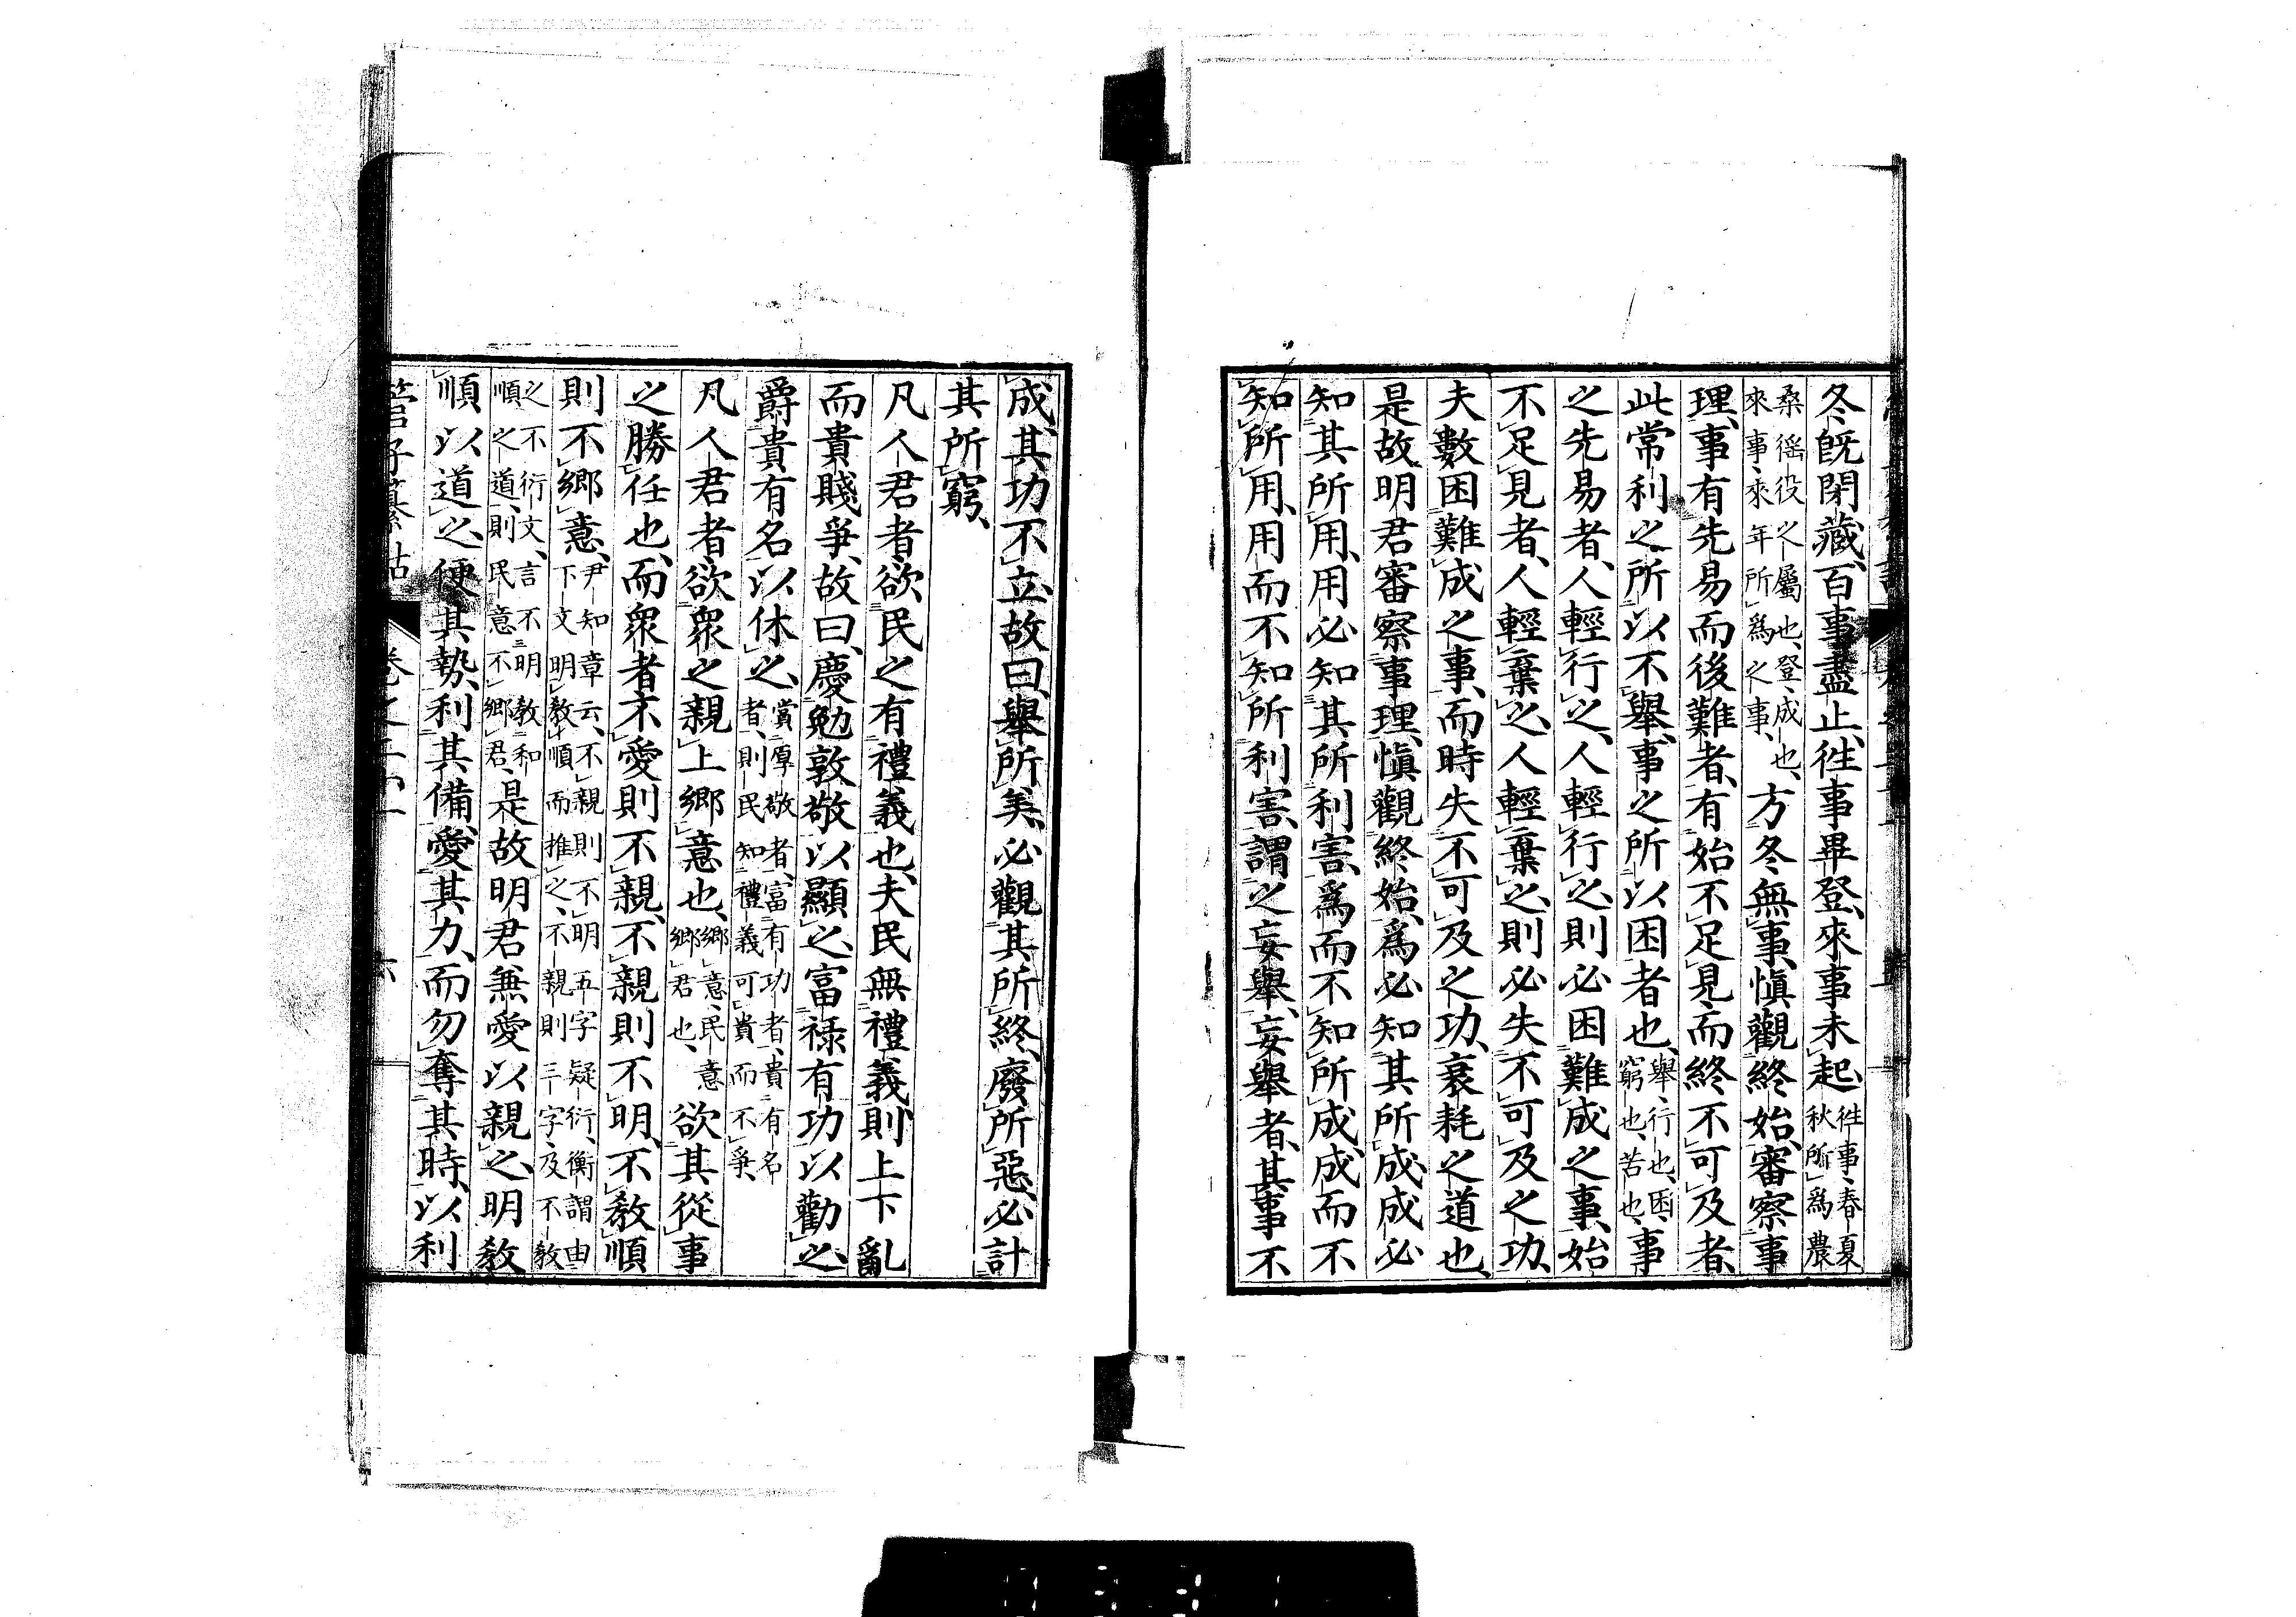 冬既閉藏、百事盡止、徃事畢登、來事未起、徃事、春夏秋所爲農
桑徭役之屬也、登、成也、來事、來年所爲之事、方冬無事、愼觀終始、審察事
理、事有先易而後難者、有始不足見、而終不可及者、
此常利之所以不舉、事之所以困者也、舉、行也、困、窮也、苦也、事
之先易者、人輕行之、人輕行之、則必困難成之事、始
不足見者、人輕棄之、人輕棄之、則必失不可及之功、
夫數困難成之事、而時失不可及之功、衰耗之道也、
是故明君審察事理、愼觀終始、爲必知其所成、成必
知其所用、用必知其所利害、爲而不知所成、成而不
知所用、用而不知所利害、謂之妄舉、妄舉者、其事不
成、其功不立、故曰、舉所美、必觀其所終、廢所惡、必計
其所窮、
凡人君者、欲民之有禮義也、夫民無禮義、則上下亂
而貴賤爭、故曰、慶勉敦敬以顯之、富祿有功以勸之、
爵貴有名以休之、賞厚敬者、富有功者、貴有名者、則民知禮義可貴而不爭、
凡人君者、欲衆之親上鄉意也、鄉意、民意鄉君也、欲其從事
之勝任也、而衆者不愛則不親、不親則不明、不敎順
則不鄉意、尹知章云、不親則不明五字疑衍、衡謂由下文明敎順而推之、不親則三字、及不敎
之不衍文、言不明敎和順之道、則民意不鄉君、是故明君兼愛以親之、明敎
順以道之、便其勢、利其備、愛其力、而勿奪其時、以利
管子纂詁 卷之二 六